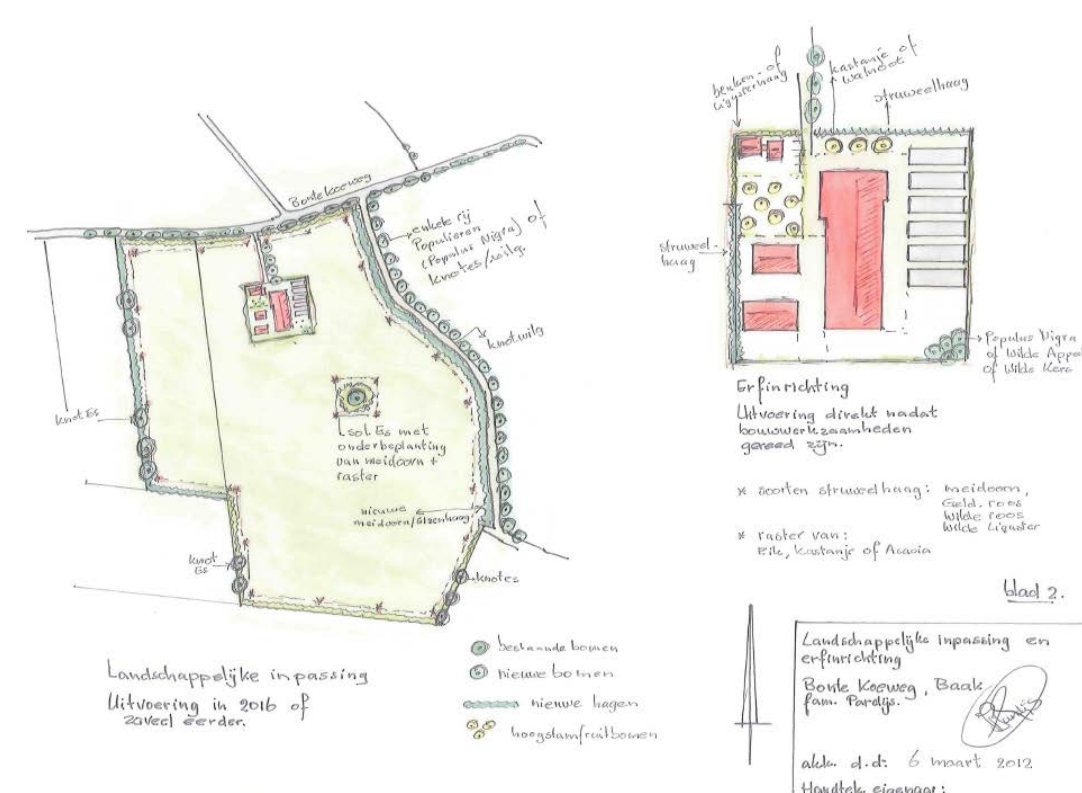 Bonte Koeweg
enkele rij
Populieren
(Populus Nigra) of
knotes/wilg.
knotwilg
knotEs
sol. Es met
onderbeplanting
van meidoorn +
raster
nieuwe
meidoorn/Elzenhaag
knot
Es
knotes
Landschappelijke inpassing
Uitvoering in 2016 of
zoveel eerder.
bestaande bomen
nieuwe bomen
nieuwe hagen
hoogstamfruitbomen
beuken- of
ligusterhaag
kastanje of
walnoot
struweelhaag
struweel-
haag
Populus Nigra
of Wilde Appel
of Wilde Kers
Erfinrichting
Uitvoering direkt nadat
bouwwerkzaamheden
gereed zijn.
* soorten struweelhaag: meidoorn,
Geld. roos
Wilde roos
Wilde Liguster
* raster van:
Eik, Kastanje of Acacia
blad 2.
Landschappelijke inpassing en
erfinrichting
Bonte Koeweg, Baak
fam. Pardijs.
akk. d.d: 6 maart 2012
Handtek. eigenaar: